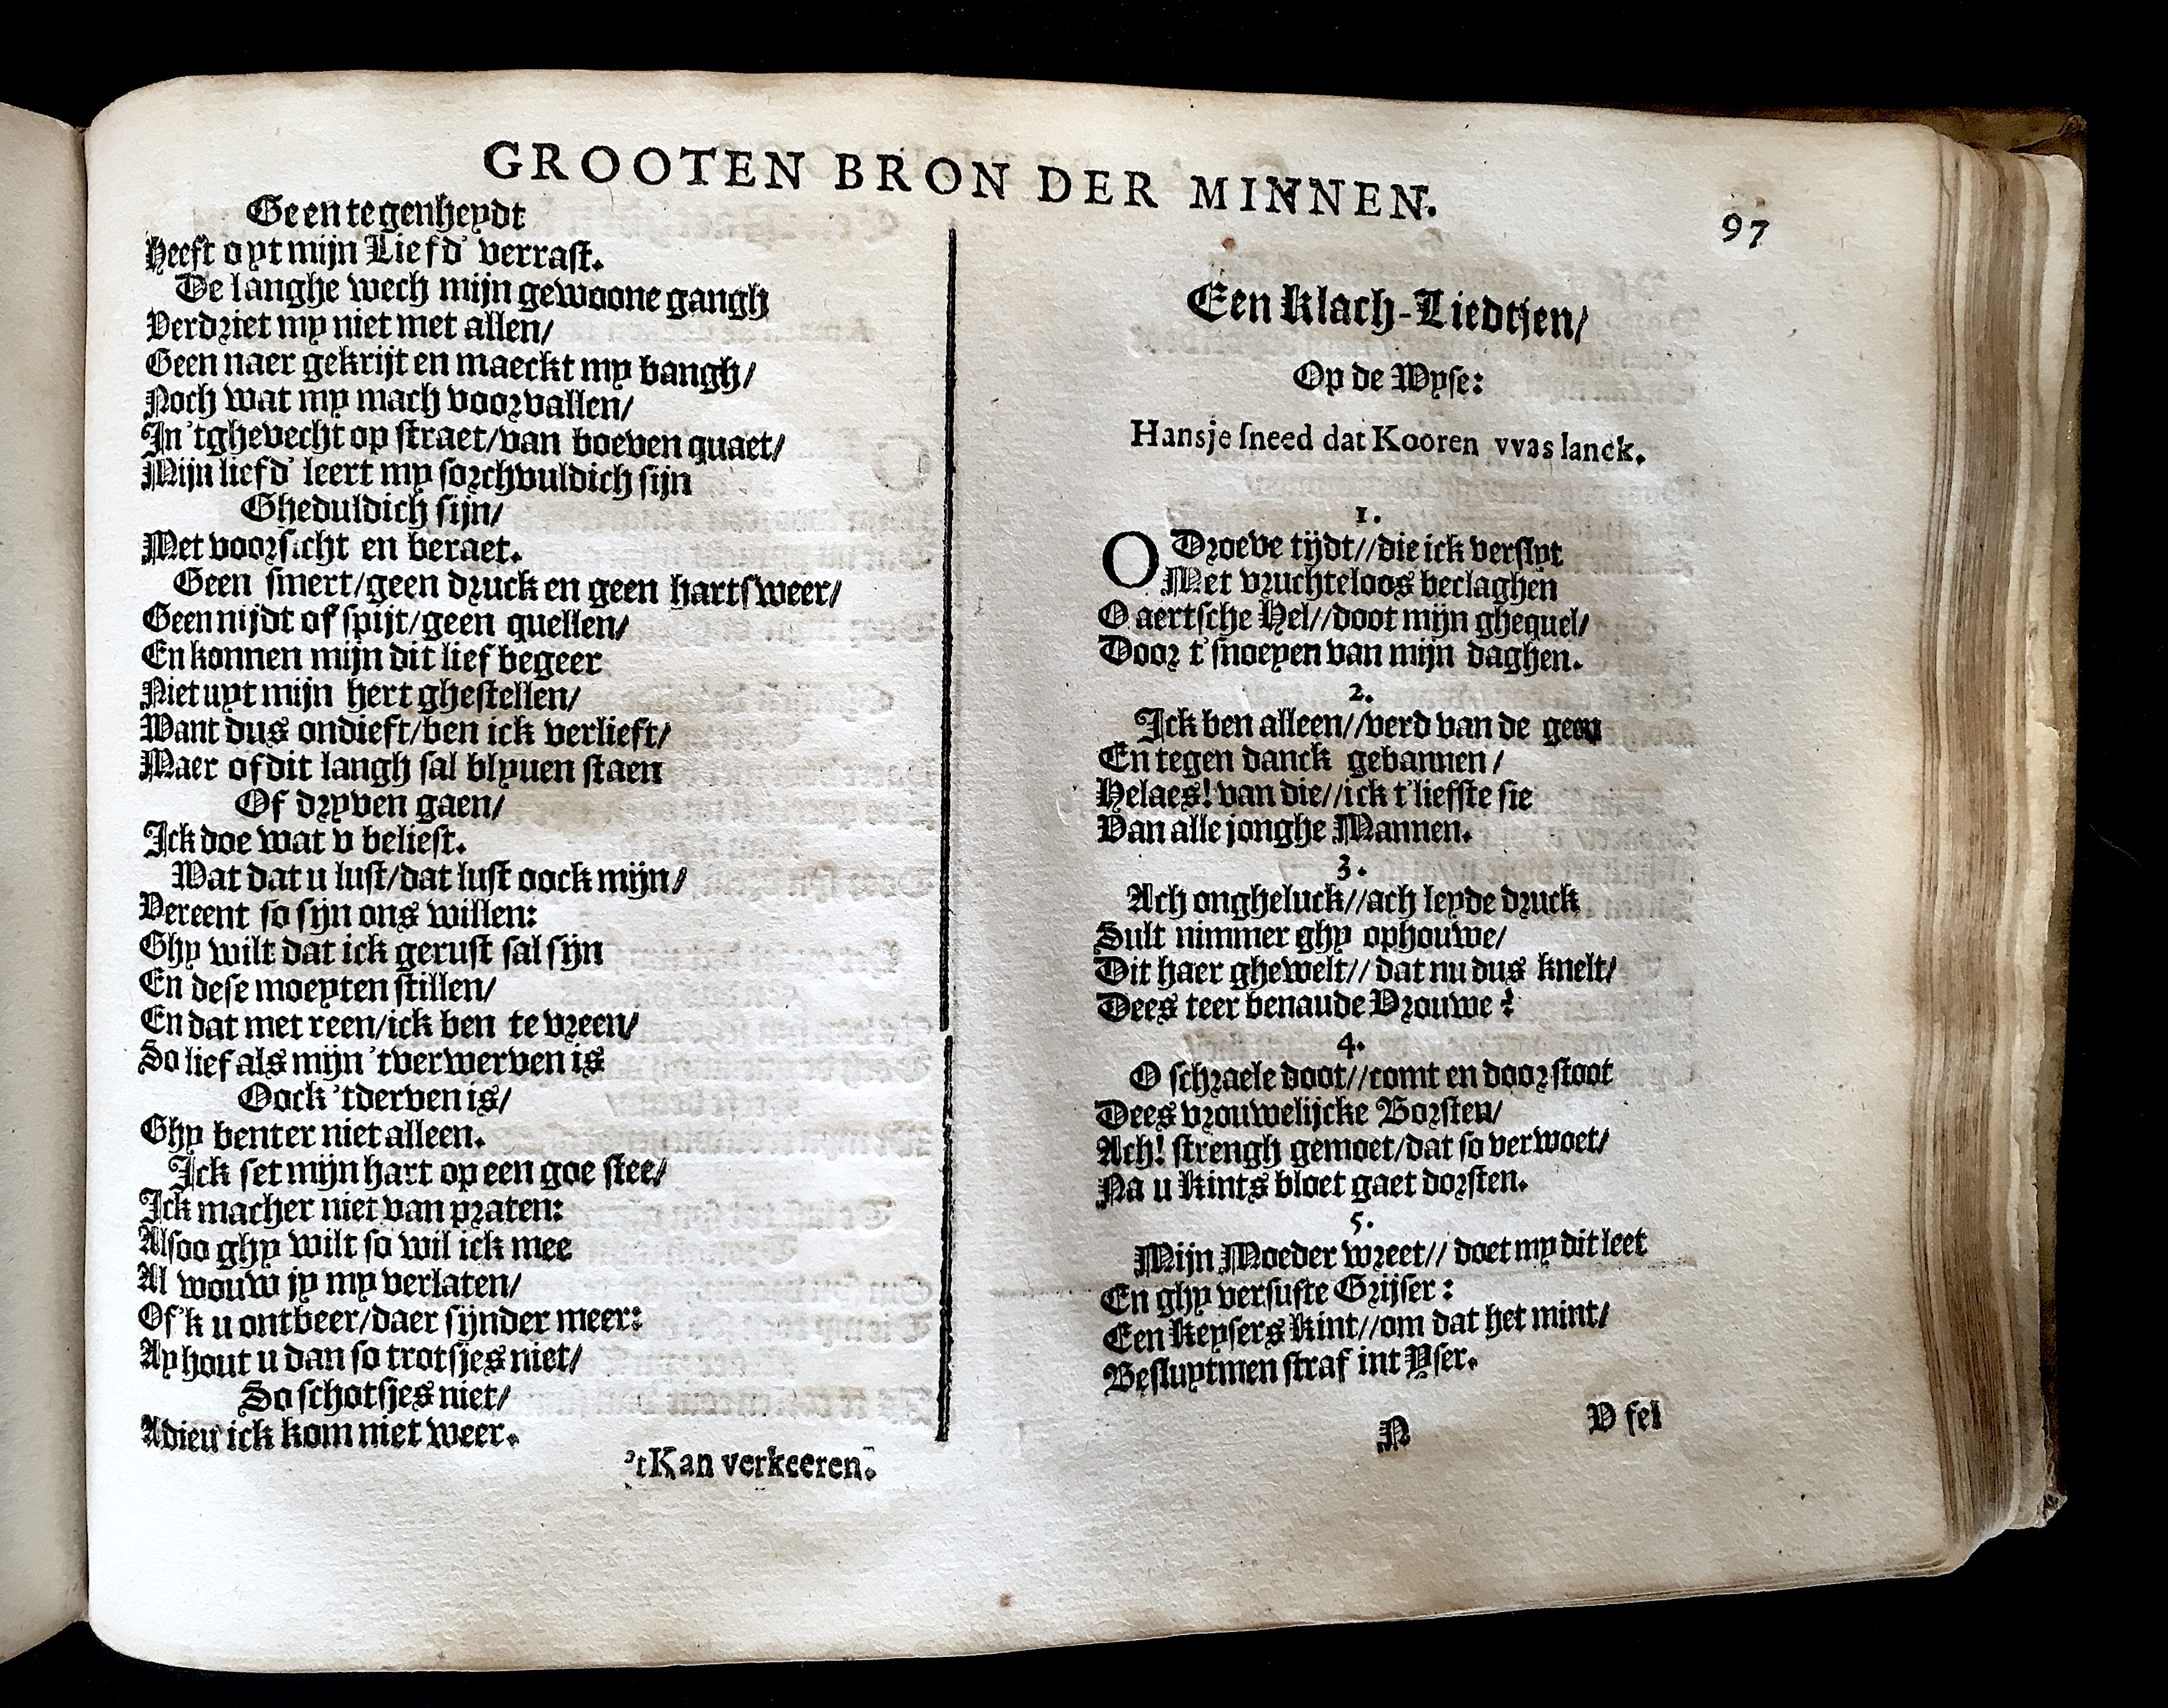 GROOTEN BRON DER MINNEN.
97
Geen tegenheydt
Heeft oyt mijn Liefd' verrast.
De langhe wech mijn gewoone gangh
Verdriet my niet met allen/
Geen naer gekrijt en maeckt my bangh/
Noch wat my mach voorvallen/
In 'tghevecht op straet/van boeven quaet/
Mijn liefd' leert my sorchvuldich sijn
Gheduldich sijn/
Met voorsicht en beraet.
Geen smert/geen druck en geen hartsweer/
Geen nijdt of spijt/geen quellen/
En konnen mijn dit lief begeer
Niet uyt mijn hert ghestellen/
Want dus ondieft/ben ick verlieft/
Maer of dit langh sal blyuen staen
Of dryven gaen/
Ick doe wat v beliest.
Wat dat u lust/dat lust oock mijn/
Vereent so sijn ons willen:
Ghy wilt dat ick gerust sal sijn
En dese moeyten stillen/
En dat met reen/ick ben te vreen/
So lief als mijn 'tverwerven is
Oock 'tderven is/
Ghy benter niet alleen.
Ick set mijn hart op een goe stee/
Ick macher niet van praten:
Alsoo ghy wilt so wil ick mee
Al wouw jy my verlaten/
Of 'k u ontbeer/daer sijnder meer:
Ay hout u dan so trotsjes niet/
So schotsjes niet/
Adieu ick kom niet weer.
't Kan verkeeren.
Een Klach-Liedtjen/
Op de Wyse:
Hansje sneed dat Kooren vvas lanck.
1.
O Droeve tijdt//die ick verslyt
Met vruchteloos beclaghen
O aertsche Hel//doot mijn ghequel/
Door t'snoeyen van mijn daghen.
2.
Ick ben alleen//verd van de geen
En tegen danck gebannen/
Helaes! van die//ick t'liefste sie
Van alle jonghe Mannen.
3.
Ach ongheluck//ach leyde druck
Sult nimmer ghy ophouwe/
Dit haer ghewelt//dat nu dus knelt/
Dees teer benaude Vrouwe?
4.
O schraele doot//comt en doorstoot
Dees vrouwelijcke Borsten/
Ach! strengh gemoet/dat so verwoet/
Na u Kints bloet gaet dorsten.
5.
Mijn Moeder wreet//doet my dit leet
En ghy versufte Grijser:
Een Keysers Kint//om dat het mint/
Besluytmen straf int Yser.
N
V fel